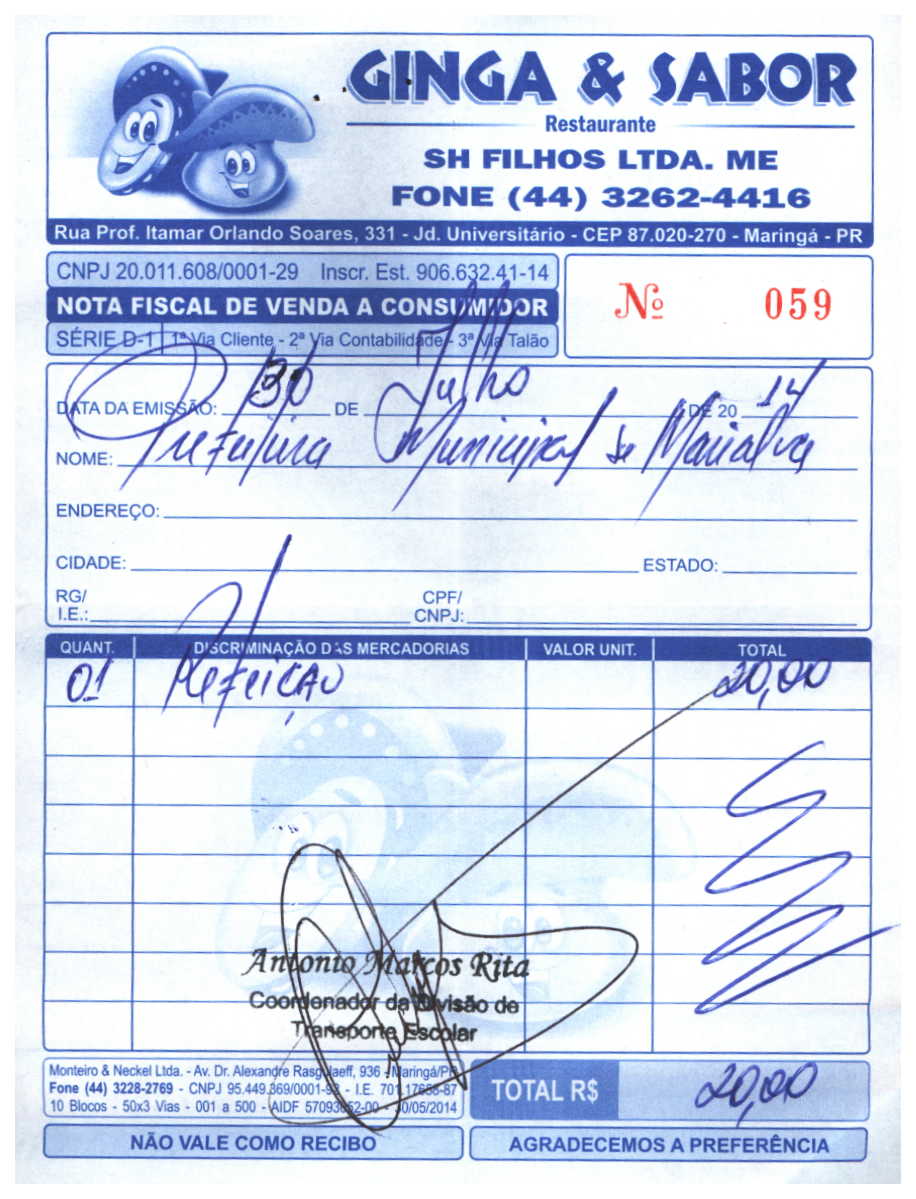 GINGA & SABOR
Restaurante
SH FILHOS LTDA. ME
FONE (44) 3262-4416
Rua Prof. Itamar Orlando Soares, 331 - Jd. Universitário - CEP 87.020-270 - Maringá - PR
CNPJ 20.011.608/0001-29 Inscr. Est. 906.632.41-14
NOTA FISCAL DE VENDA A CONSUMIDOR
SÉRIE D-1 1ª Via Cliente - 2ª Via Contabilidade - 3ª Via Talão
Nº 059
DATA DA EMISSÃO: 30 DE Julho DE 20 14
NOME: Prefeitura Municipal de Marialva
ENDEREÇO:
CIDADE: ESTADO:
RG/ I.E.: CPF/ CNPJ:
QUANT. DISCRIMINAÇÃO DAS MERCADORIAS VALOR UNIT. TOTAL
01 Refeição 20,00
Antonio Marcos Rita
Coordenador da Divisão de
Transporte Escolar
Monteiro & Neckel Ltda. - Av. Dr. Alexandre Rasgulaeff, 936 - Maringá/PR
Fone (44) 3228-2769 - CNPJ 95.449.369/0001- - I.E.
10 Blocos - 50x3 Vias - 001 a 500 - AIDF - 30/05/2014
TOTAL R$ 20,00
NÃO VALE COMO RECIBO
AGRADECEMOS A PREFERÊNCIA